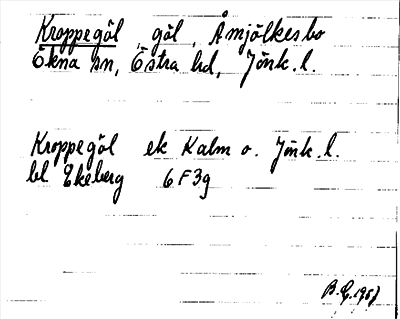 Kroppegöl, göl, Åmjölkesbo
Ökna sn, Östra hd, Jönk. l.
Kroppegöl ek Kalm o. Jönk. l.
bl Ekeberg 6 F 3g